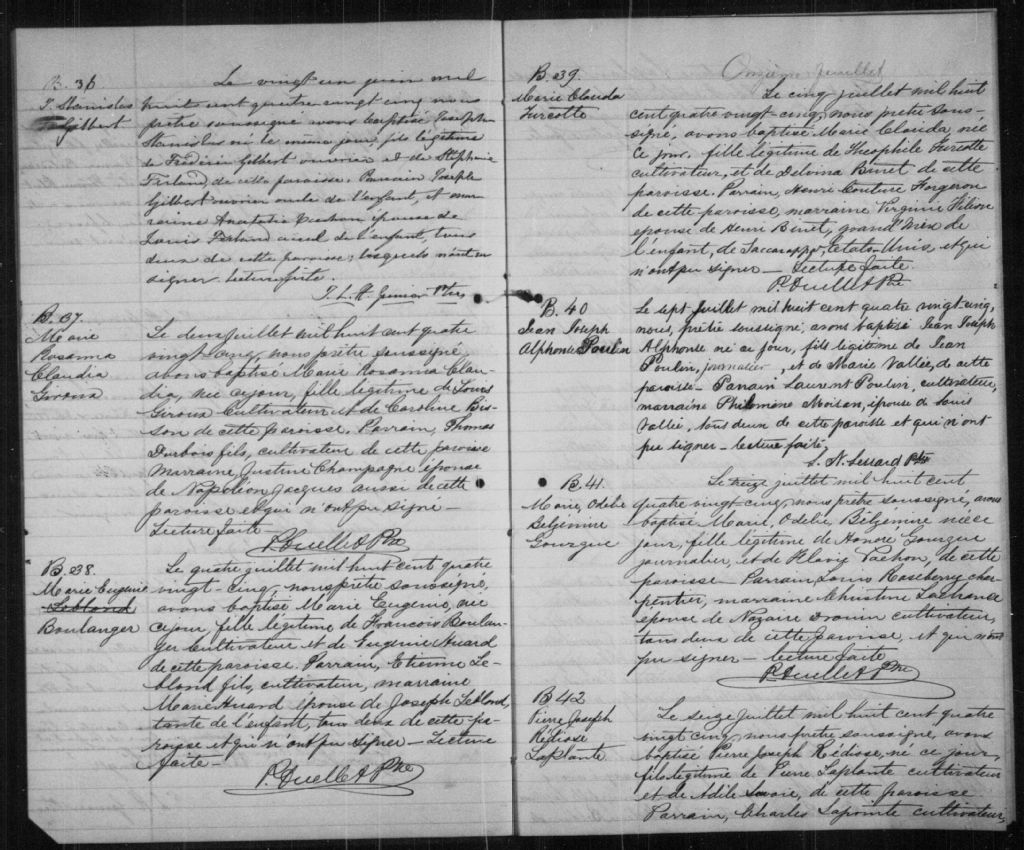 B. 36
J. Stanislas
Gilbert
Le vingt un juin mil
huit cent quatre vingt cinq nous
prêtre soussigné avons baptisé Joseph
Stanislas né le même jour, fils légitime
de Frédéric Gilbert ouvrier et de Stéphanie
Ferland, de cette paroisse. Parrain Joseph
Gilbert ouvrier oncle de l'enfant, et mar
raine Anatolie épouse de
Louis Ferland aieul de l'enfant, tous
deux de cette paroisse, lesquels n'ont su
signer. Lecture faite.
Ptre
B. 37.
Marie
Rosanna
Claudia
Giroux
Le deux juillet mil huit cent quatre
vingt cinq, nous prêtre soussigné,
avons baptisé Marie Rosanna Clau-
dia, née ce jour, fille légitime de Louis
Giroux Cultivateur et de Caroline Bis-
son de cette paroisse. Parrain, Thomas
fils, cultivateur de cette paroisse
Marraine, Justine Champagne épouse
de Napoléon Jacques aussi de cette
paroisse et qui n'ont pu signé —
Lecture faite —
P. Ouellet Ptre
B. 38.
Marie Eugenie
Leblond
Boulanger
Le quatre juillet mil huit cent quatre
vingt-cinq, nous prêtre soussigné,
avons baptisé Marie Eugenie, née
ce jour, fille légitime de Francois Boulan-
ger Cultivateur et de Eugenie Huard
de cette paroisse. Parrain, Etienne Le-
blond fils, cultivateur, marraine
Marie Huard épouse de Joseph Leblond,
tante de l'enfant, tous deux de cette pa-
roisse et qui n'ont pu signer — Lecture
faite —
P. Ouellet Ptre
B. 39.
Marie Clauda
Turcotte
Onzième feuillet
Le cinq juillet mil huit
cent quatre vingt-cinq, nous prêtre sous-
signé, avons baptisé Marie Clauda, née
ce jour, fille légitime de Théophile Turcotte
cultivateur, et de Delvina Binet de cette
paroisse. Parrain, Henri Couture Forgeron
de cette paroisse, marraine Virginie
epouse de Henri Binet, grand'mère de
l'enfant, de Saccarappa, Etats-Unis, et qui
n'ont pu signer — Lecture faite.
P. Ouellet Ptre
B. 40
Jean Joseph
Alphonse Poulin
Le sept Juillet mil huit cent quatre vingt cinq,
nous, prêtre soussigné, avons baptisé Jean Joseph
Alphonse né ce jour, fils légitime de Jean
Poulin, journalier, et de Marie Vallée, de cette
paroisse — Parrain Laurent Poulin, cultivateur,
marraine Philomène Moisan, épouse de Louis
Vallée, tous deux de cette paroisse et qui n'ont
pu signer — Lecture faite.
L. N. Lessard Ptre
B. 41.
Marie, Odelie
Belzemire
Gourgue
Le treize juillet mil huit cent
quatre vingt-cinq, nous prêtre soussigné, avons
baptisé Marie, Odelie, Belzemire née ce
jour, fille légitime de Honoré Gourgue
journalier, et de Flavie Vachon, de cette
paroisse — Parrain Louis Roseberry char-
pentier, marraine Christine Lachance
épouse de Nazaire Drouin cultivateur,
tous deux de cette paroisse, et qui n'ont
pu signer — Lecture faite
P. Ouellet Ptre
B 42
Pierre Joseph
Rédiose
LaPlante
Le seize juillet mil huit cent quatre
vingt cinq, nous prêtre soussigné, avons
baptisé Pierre Joseph Rédiose, né ce jour,
fils légitime de Pierre Laplante cultivateur
et de Adile Savoie, de cette paroisse.
Parrain, Charles Lapointe cultivateur,